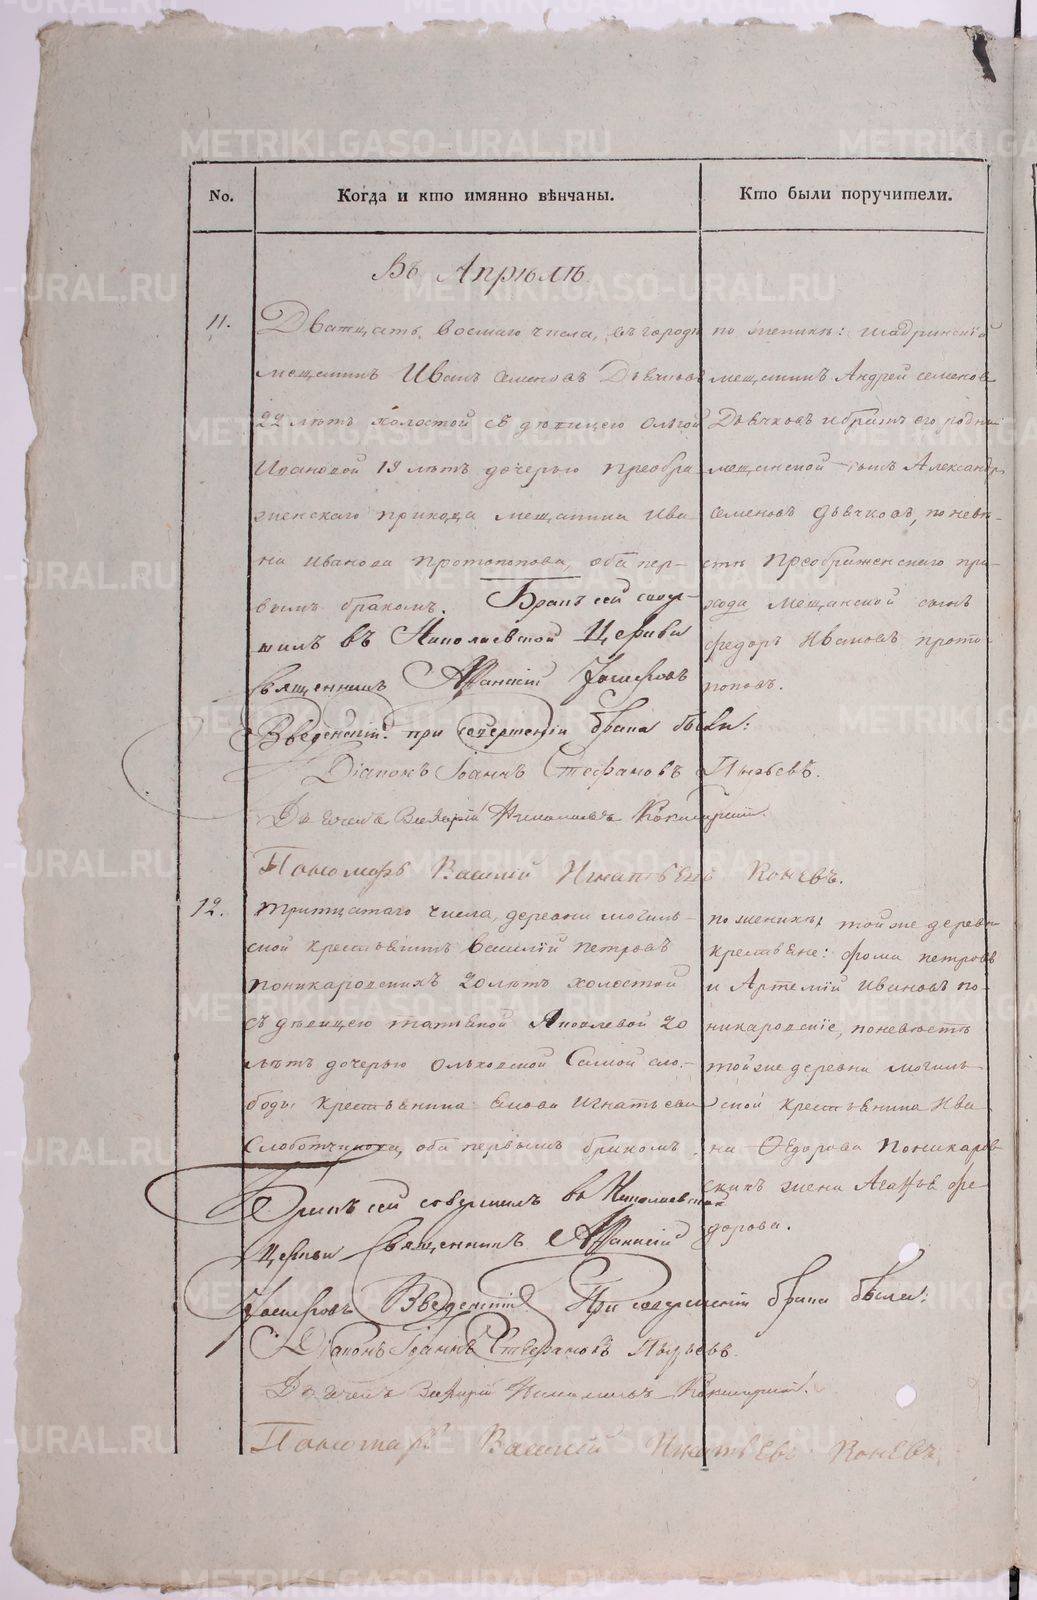 No.
Когда и кто имянно вѣнчаны.
Кто были поручители.
Въ Апрѣлѣ
11.
Дватцать восмаго числа, въ городѣ
мещанинъ Иванъ Семеновъ Дьячковъ
22 лѣтъ холостой съ дѣвицею Ольгой
Ивановой 19 лѣтъ дочерью преобра
женскаго прихода мещанина Ива
на Иванова Протопопова, оба пер-
вымъ бракомъ. Бракъ сей совер-
шилъ въ Николаевской Церкви
Священникъ Афанасій
Введенскій. при совершеніи брака были:
Діаконъ Іоаннъ Стефановъ Пырьевъ.
Дьячекъ Валерій
Пономарь Василій Игнатьевъ Коневъ.
по женихѣ: шадринскій
мещанинъ Андрей Семенов
Дьячковъ и братъ его родн
мещанской сынъ Александр
Семеновъ дьячковъ, по невѣ-
стѣ Преображенскаго при-
хода мещанской сынъ
федоръ Ивановъ прото
поповъ.
12.
Тритцатаго числа, деревни Могиль-
ской крестьянинъ Василій Петровъ
Поникаровскихъ 20 лѣтъ холостой
съ дѣвицею Татьяной Яковлевой 20
лѣтъ дочерью Ольховской Самой сло-
боды крестьянина Якова Игнатьева
Слоботчикова, оба первымъ бракомъ.
Бракъ сей совершилъ въ Николаевской
Церкви Священникъ Афанасій
Введенскій. При совершеніи брака были:
Діаконъ Іоаннъ Стефановъ Пырьевъ.
Дьячекъ Валерій
Пономарь Василій Игнатьевъ Коневъ.
по женихѣ, тойже дерев
крестьяне: фома петровъ
и Артемій Ивановъ по-
никаровскіе, по невѣстѣ
тойже деревни Могиль
ской крестьянина Ива
на Федорова Поникаров
скихъ жена Агафья фе
дорова.
METRIKI.GASO-URAL.RU